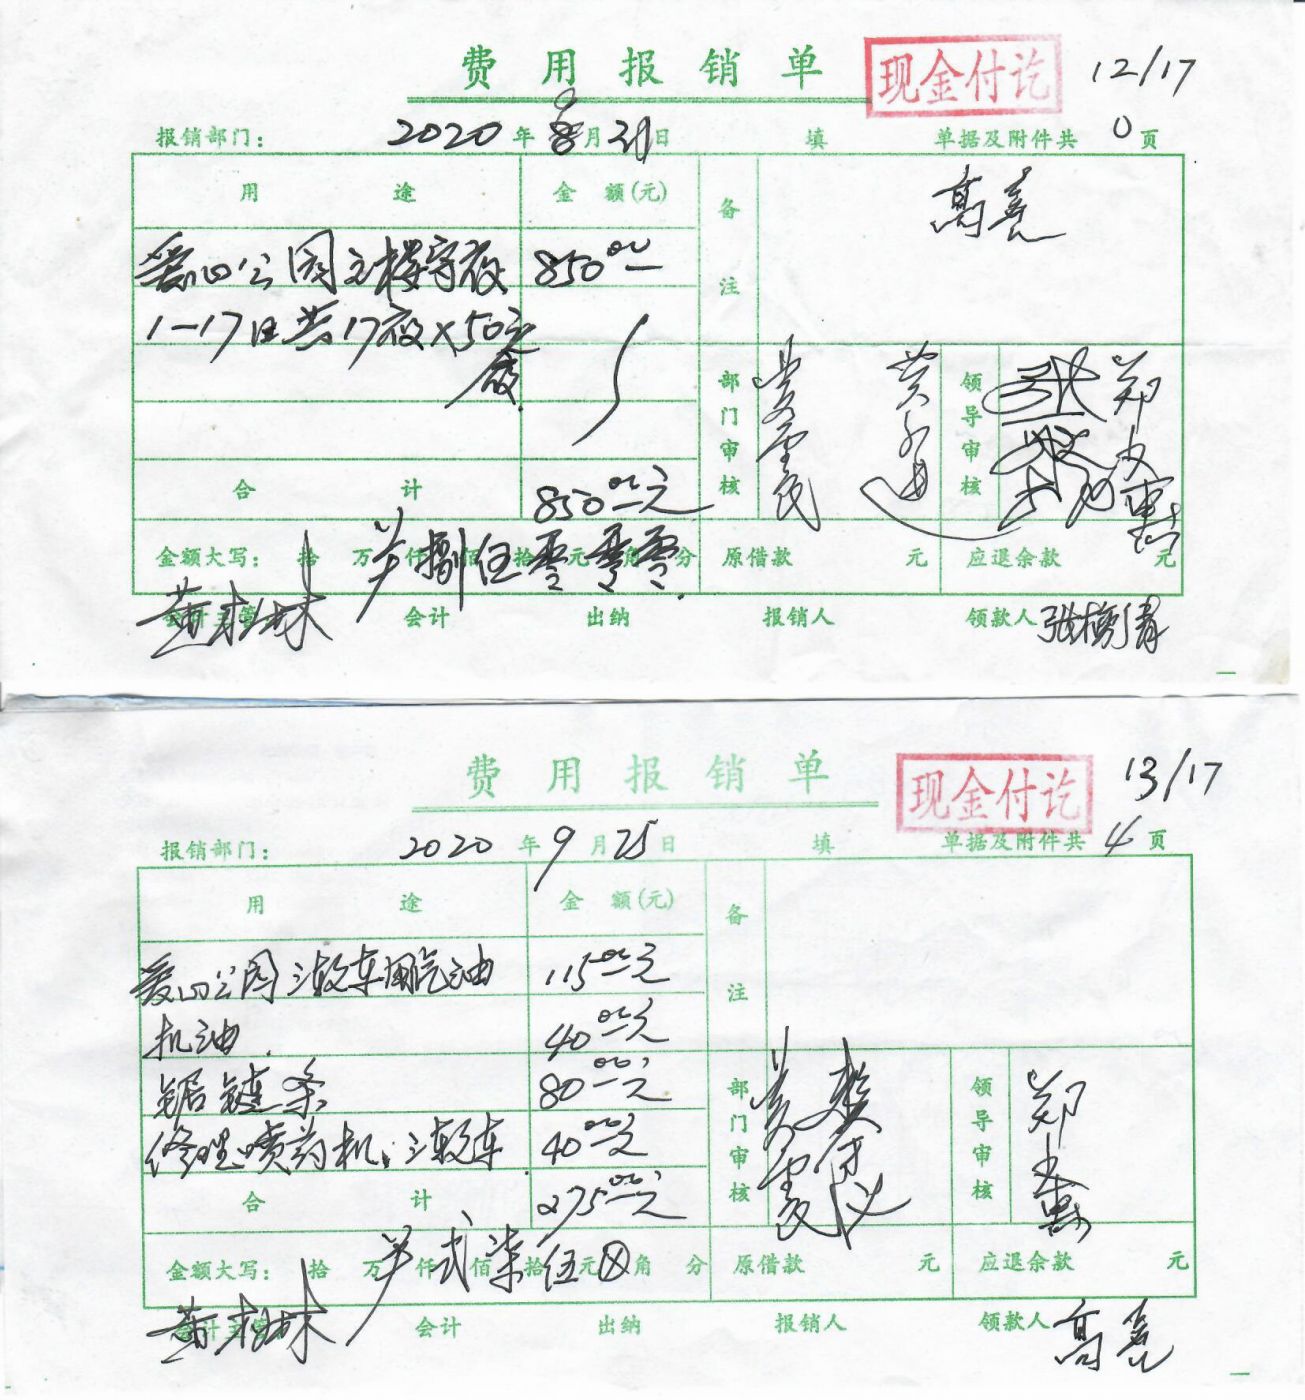 费用报销单 现金付讫 12/17
报销部门： 2020年8月31日 填 单据及附件共0页
用途 金额(元) 备注 高亮
爱心公园主楼守夜 850.00
1-17日共17夜×50元
夜
合计 850.00元 部门审核 领导审核 郑
金额大写： 拾万仟佰拾元角分 捌伍零零零 原借款 元 应退余款 元
会计主管 黄 林 会计 出纳 报销人 领款人 张
费用报销单 现金付讫 13/17
报销部门： 2020年9月25日 填 单据及附件共4页
用途 金额(元) 备注
爱心公园三轮车用汽油 115.00元
机油 40.00元
锯链条 80.00元
修理喷药机、三轮车 40.00元
合计 275.00元 部门审核 领导审核 郑
金额大写： 拾万仟佰拾元角分 贰柒伍 原借款 元 应退余款 元
会计主管 黄 林 会计 出纳 报销人 领款人 高亮